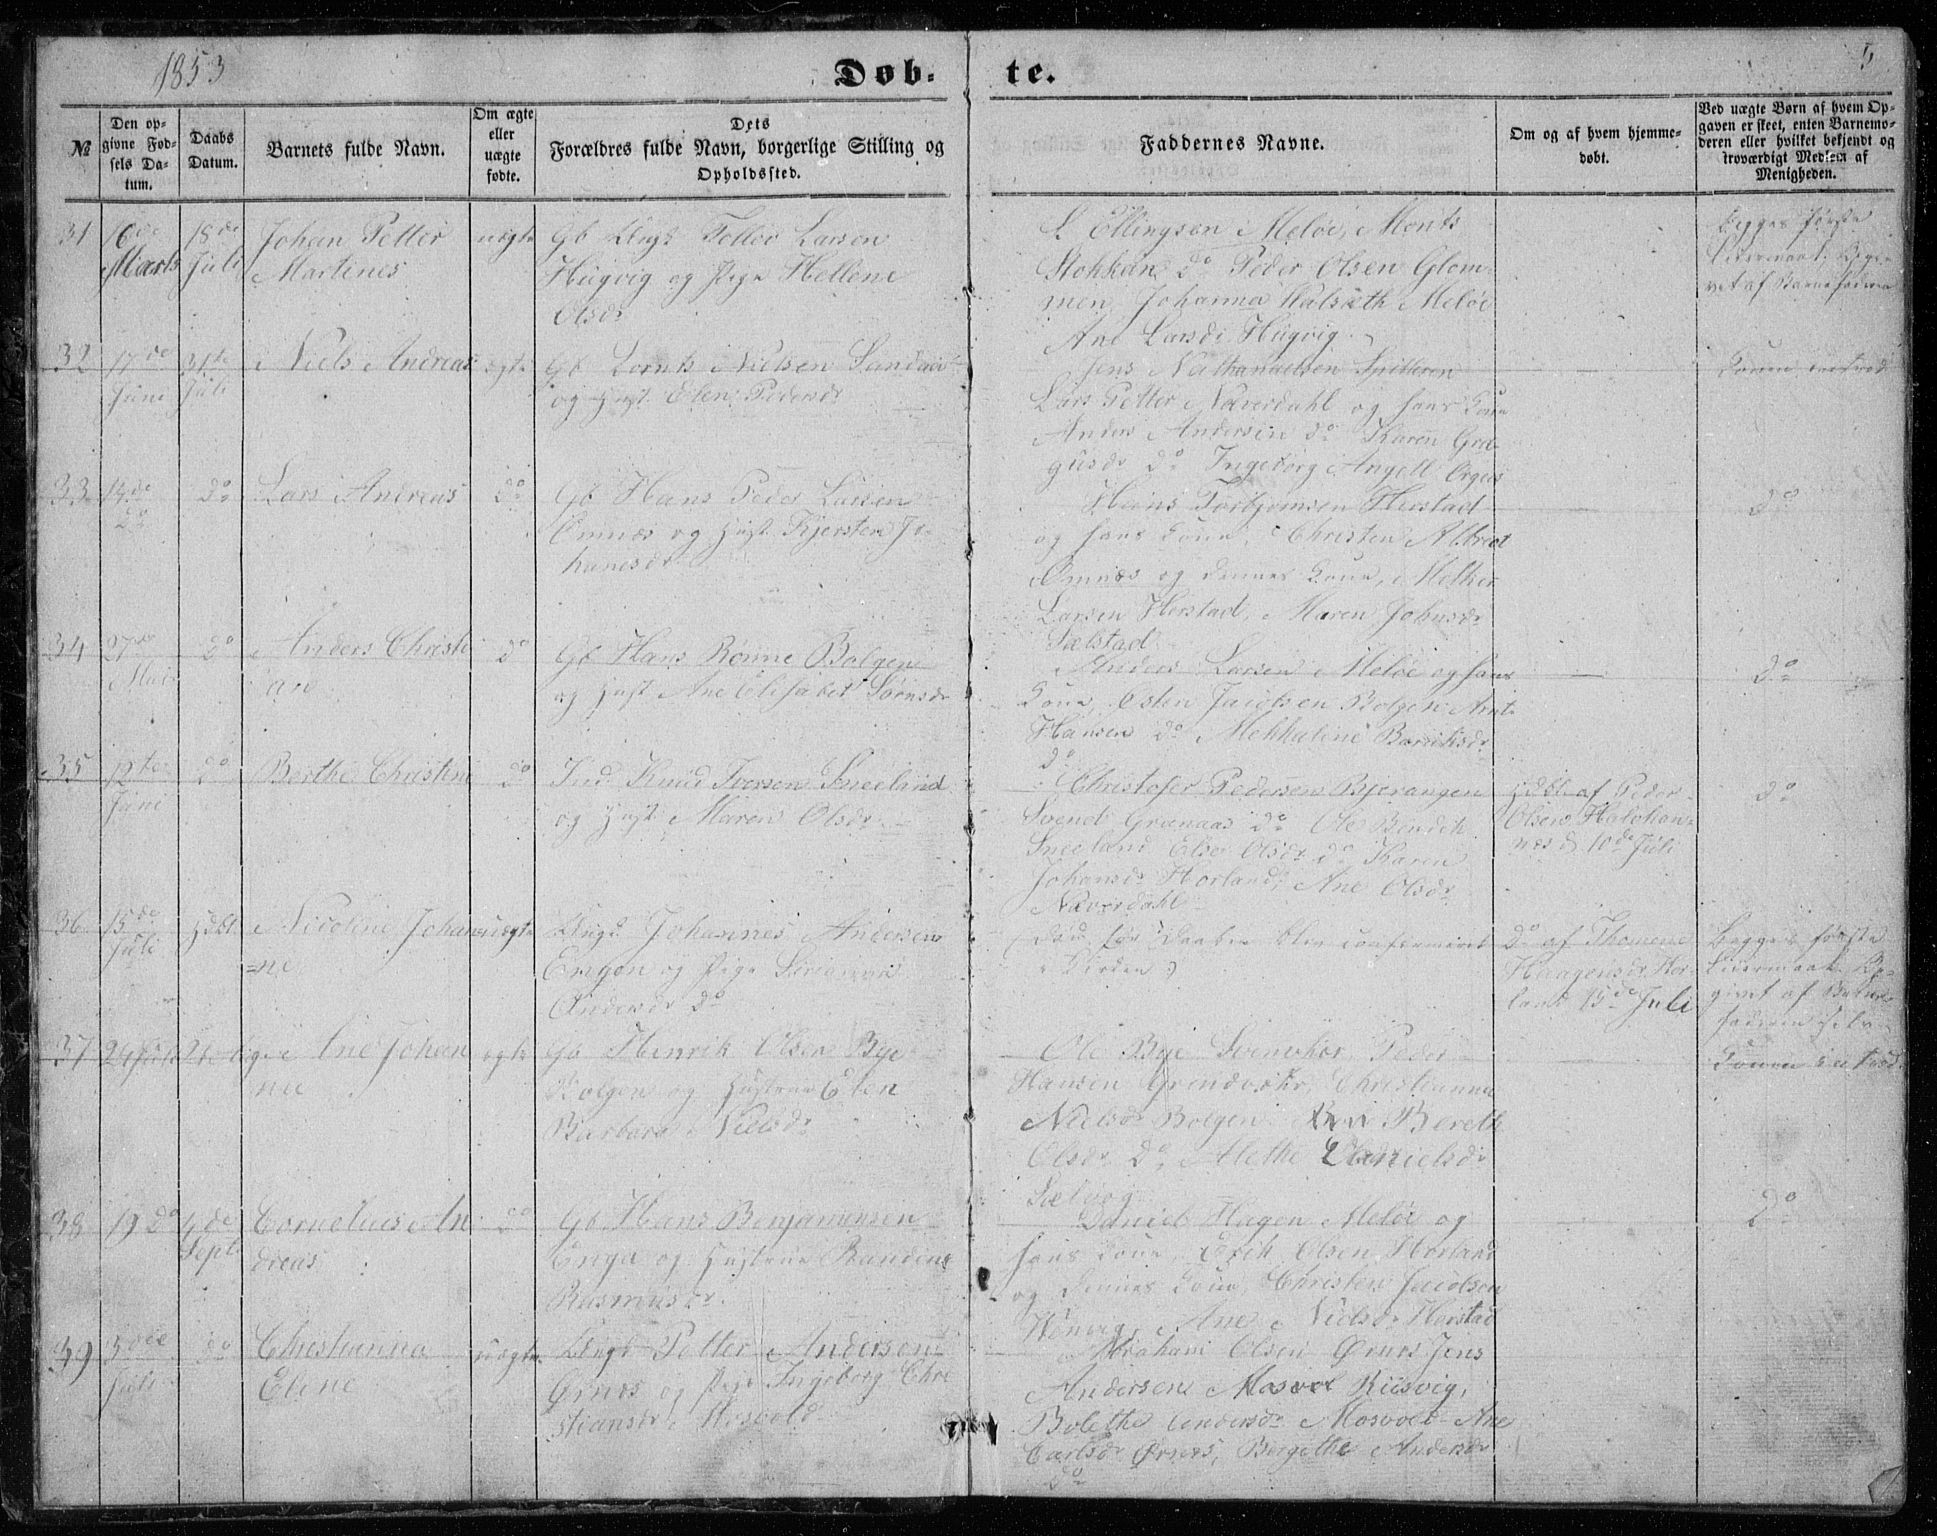 1853
Døb-
te.
5
№
Den op-
givne Fød-
sels Da-
tum.
Daabs
Datum.
Barnets fulde Navn.
Om ægte
eller
uægte
fødte.
Dets
Forældres fulde Navn, borgerlige Stilling og
Opholdssted.
Faddernes Navne.
Om og af hvem hjemme-
døbt.
Ved uægte Børn af hvem Op-
gaven er skeet, enten Barnemo-
deren eller hvilket bekjendt og
troværdigt Medlem af
Menigheden.
31
16de
Marts
18de
Juli
Johan Petter
Martines
uægte
Ungk Tollev Larsen
Hugvig og Pige Hellene
Olsdr
L Ellingsen Meløe, Monts
Stokkan do Peder Olsen Glom-
men, Johanna Walsæth Meløe
Ane Larsdr Hugvig
Begges første
Leiermaal.
af Barnefaderen
32
17de
Juni
31te
Juli
Niels Andreas
ægte
Gb Lornts Nielsen Sandaa
og Hust Elen Pedersdr
Jens Nathanaelsen Spilderen
Lars Petter Næverdahl og hans Kone
Anders Andersen do Karen Gre-
gusdr do Ingeborg Angell Ørgen
33
14de
do
do
Lars Andreas
do
Gb Hans Peder Larsen
Omnæs og Hust Kjersten Jo-
hanesdr
Hans Torbjørnsen Herstad
og hans Kone, Christen Albregt
Omnæs og dennes Kone,
Larsen Herstad, Maren Johnsdr
Sælstad
do
34
27de
Mai
do
Anders Christi
an
do
Gb Hans Rønne Bolgen
og Hust Ane Elisabet Sørensdr
Anders Larsen Meløe og hans
Kone, Osten Jacobsen Bolgen Arnt
Hansen do Mekkaline
do
do
35
12te
Juni
do
Berthe Christine
do
Ind Knud Iversen Sneeland
og Hust Maren Olsdr
Christofer Pedersen Bjerangen
Svend Grænaas do Ole Bendik
Sneeland Else Olsdr do Karen
Johansdr Horland, Ane Olsdr
Næverdahl
Hdbt af Peder
Olsen
næs d 10de Juli
do
36
15de
Juli
Hdbt
Nicoline Johan
=ne
uægte
Ungk Johannes Andersen
Engen og Pige
Andersdr do
(Død før Daaben blev confirmeret
i Kirken)
do af Thomene
Haagensdr Hor-
land 15de Juli
Begges første
Leiermaal. Op-
givet af Barne-
faderen selv
37
Ane Johan
ne
ægte
Gb Henrik Olsen Bye
Bolgen og Hustrue Elen
Barbara Nielsdr
Ole Bye Svinvær Peder
Hansen Grindvikr, Christianna
Nielsdr Bolgen Bereth
Olsdr do Alethe Danielsdr
Sælvog
38
19 do
4de
Septr
Cornelius An
dreas
do
Gb Hans Benjaminsen
Enga og Hustrue Randine
Rasmusdr.
Daniel Hagen Meløe og
hans Kone, Erik Olsen Horland
og dennes Kone, Christen Jacobsen
Ane Nielsdr Horstad
do
39
3die
Juli
do
Christianna
Eline
uægte
Ungk Petter Andersen
Ørnes og Pige Ingeborg Chri
stiansdr Mosvold
Abraham Olsen Ørnes Jens
Andersen Mosvol Riisvig,
Bolethe Andersdr Mosvold Ane
Carlsdr Ørnes, Bergithe Andersdr
do